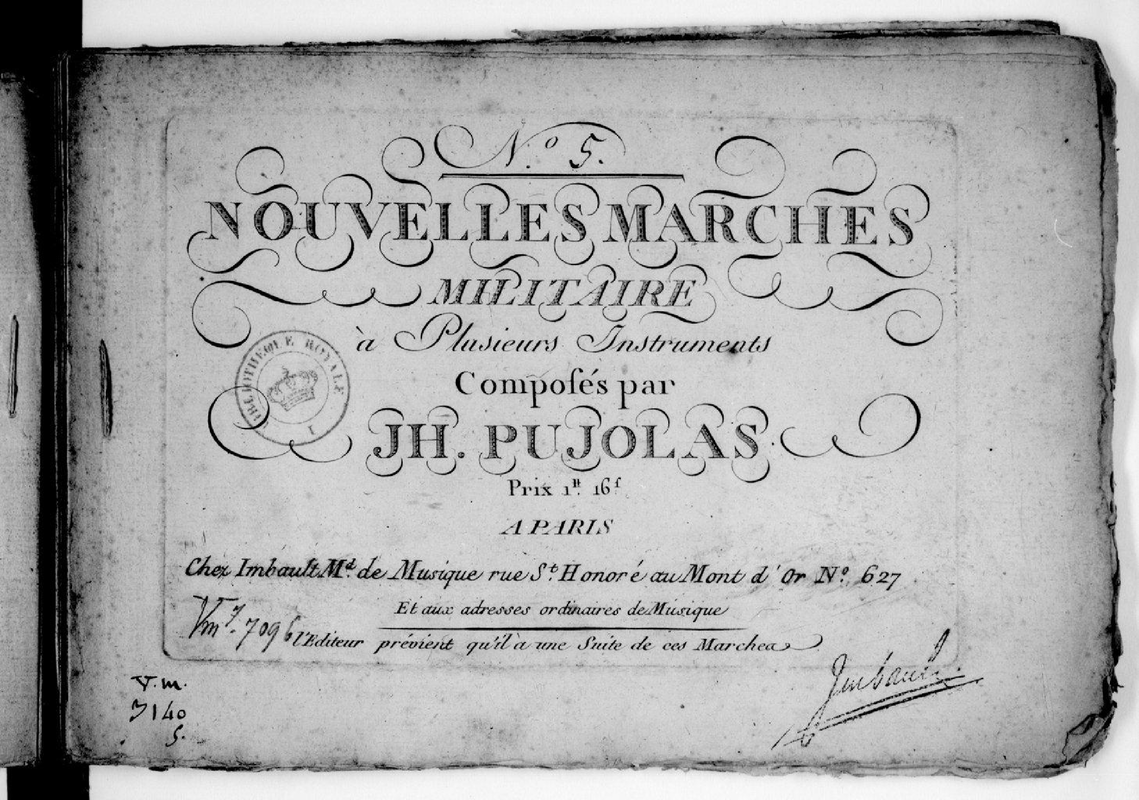 N.º 5.
NOUVELLES MARCHES
MILITAIRE
à Plusieurs Instruments
Composés par
JH. PUJOLAS
Prix 1.tt 16f
A PARIS
Chez Imbault M.d de Musique rue S.t Honoré au Mont d'Or N.º 627
Et aux adresses ordinaires de Musique
l'Editeur prévient qu'il à une Suite de ces Marchea
BIBLIOTHEQUE ROYALE
Vm7. 7096
V.m.
3140
5.
Imbault